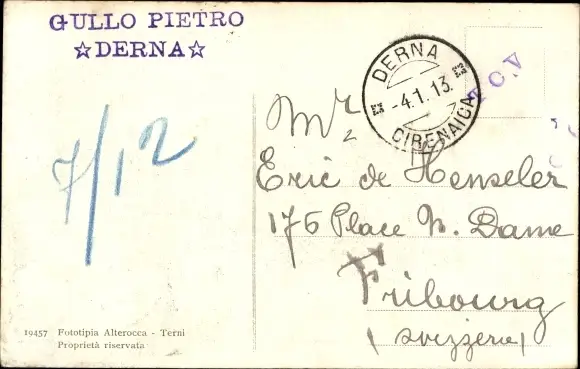 GULLO PIETRO
☆DERNA☆
DERNA
-4.1.13.
CIRENAICA
T.C.V
7/12
Mr
Eric de Henseler
175 Place N. Dame
Fribourg
(Svizzera)
19457 Fototipia Alterocca - Terni
Proprietà riservata